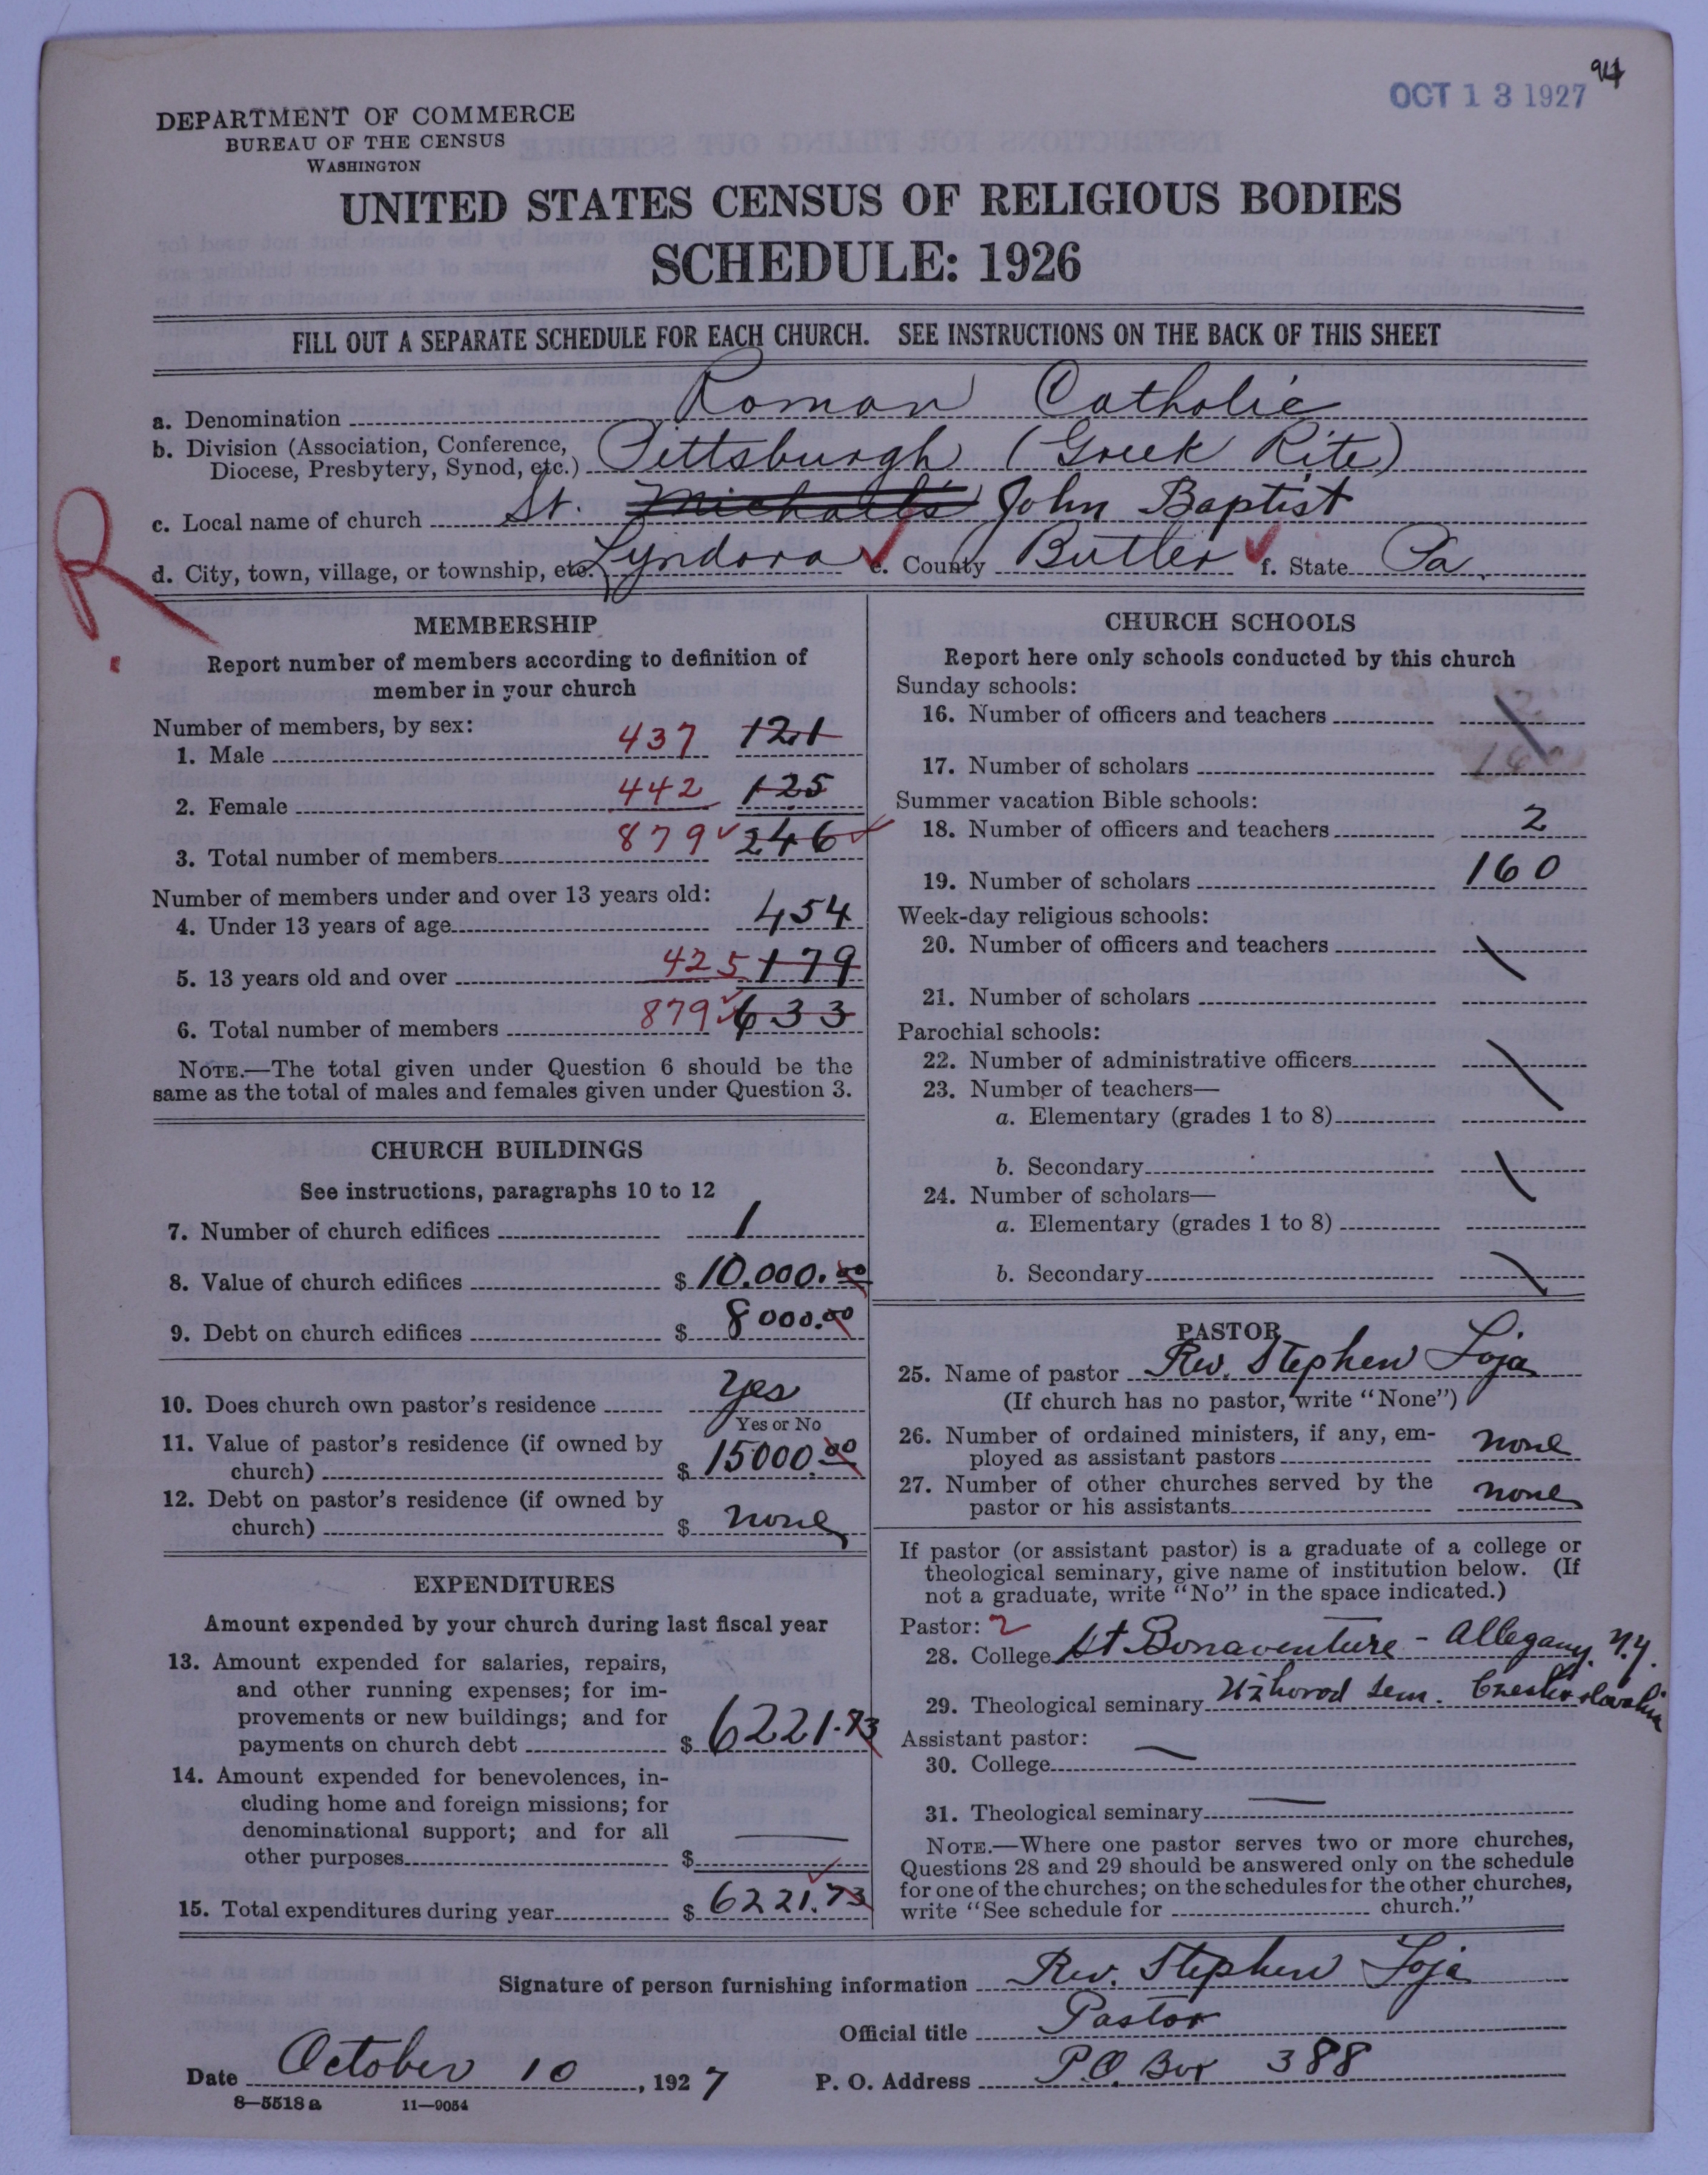 94
OCT 13 1927
DEPARTMENT OF COMMERCE
BUREAU OF THE CENSUS
WASHINGTON
UNITED STATES CENSUS OF RELIGIOUS BODIES
SCHEDULE: 1926
FILL OUT A SEPARATE SCHEDULE FOR EACH CHURCH. SEE INSTRUCTIONS ON THE BACK OF THIS SHEET
a. Denomination Roman Catholic
b. Division (Association, Conference,
Diocese, Presbytery, Synod, etc.) Pittsburgh (Greek Rite)
c. Local name of church St. Michael's John Baptist
d. City, town, village, or township, etc. Lyndora e. County Butler f. State Pa.
R.
MEMBERSHIP
Report number of members according to definition of
member in your church
Number of members, by sex:
1. Male 437 121
2. Female 442 125
3. Total number of members 879 246
Number of members under and over 13 years old:
4. Under 13 years of age 454
5. 13 years old and over 425 179
6. Total number of members 879 633
NOTE.—The total given under Question 6 should be the
same as the total of males and females given under Question 3.
CHURCH BUILDINGS
See instructions, paragraphs 10 to 12
7. Number of church edifices 1
8. Value of church edifices $ 10.000.00
9. Debt on church edifices $ 8000.00
10. Does church own pastor's residence Yes
Yes or No
11. Value of pastor's residence (if owned by
church) $ 15000.00
12. Debt on pastor's residence (if owned by
church) $ none
EXPENDITURES
Amount expended by your church during last fiscal year
13. Amount expended for salaries, repairs,
and other running expenses; for im-
provements or new buildings; and for
payments on church debt $ 6221.73
14. Amount expended for benevolences, in-
cluding home and foreign missions; for
denominational support; and for all
other purposes $
15. Total expenditures during year $ 6221.73
CHURCH SCHOOLS
Report here only schools conducted by this church
Sunday schools:
16. Number of officers and teachers
17. Number of scholars
Summer vacation Bible schools:
18. Number of officers and teachers 2
19. Number of scholars 160
Week-day religious schools:
20. Number of officers and teachers
21. Number of scholars
Parochial schools:
22. Number of administrative officers
23. Number of teachers—
a. Elementary (grades 1 to 8)
b. Secondary
24. Number of scholars—
a. Elementary (grades 1 to 8)
b. Secondary
PASTOR
25. Name of pastor Rev. Stephen Loja
(If church has no pastor, write "None")
26. Number of ordained ministers, if any, em-
ployed as assistant pastors none
27. Number of other churches served by the
pastor or his assistants none
If pastor (or assistant pastor) is a graduate of a college or
theological seminary, give name of institution below. (If
not a graduate, write "No" in the space indicated.)
Pastor: 2
28. College St Bonaventure - Allegany. N.Y.
29. Theological seminary Užhorod Sem.
Assistant pastor:
30. College
31. Theological seminary
NOTE.—Where one pastor serves two or more churches,
Questions 28 and 29 should be answered only on the schedule
for one of the churches; on the schedules for the other churches,
write "See schedule for church."
Signature of person furnishing information Rev. Stephen Loja
Official title Pastor
Date October 10, 1927 P. O. Address P.O. Box 388
8—5518a 11—9054